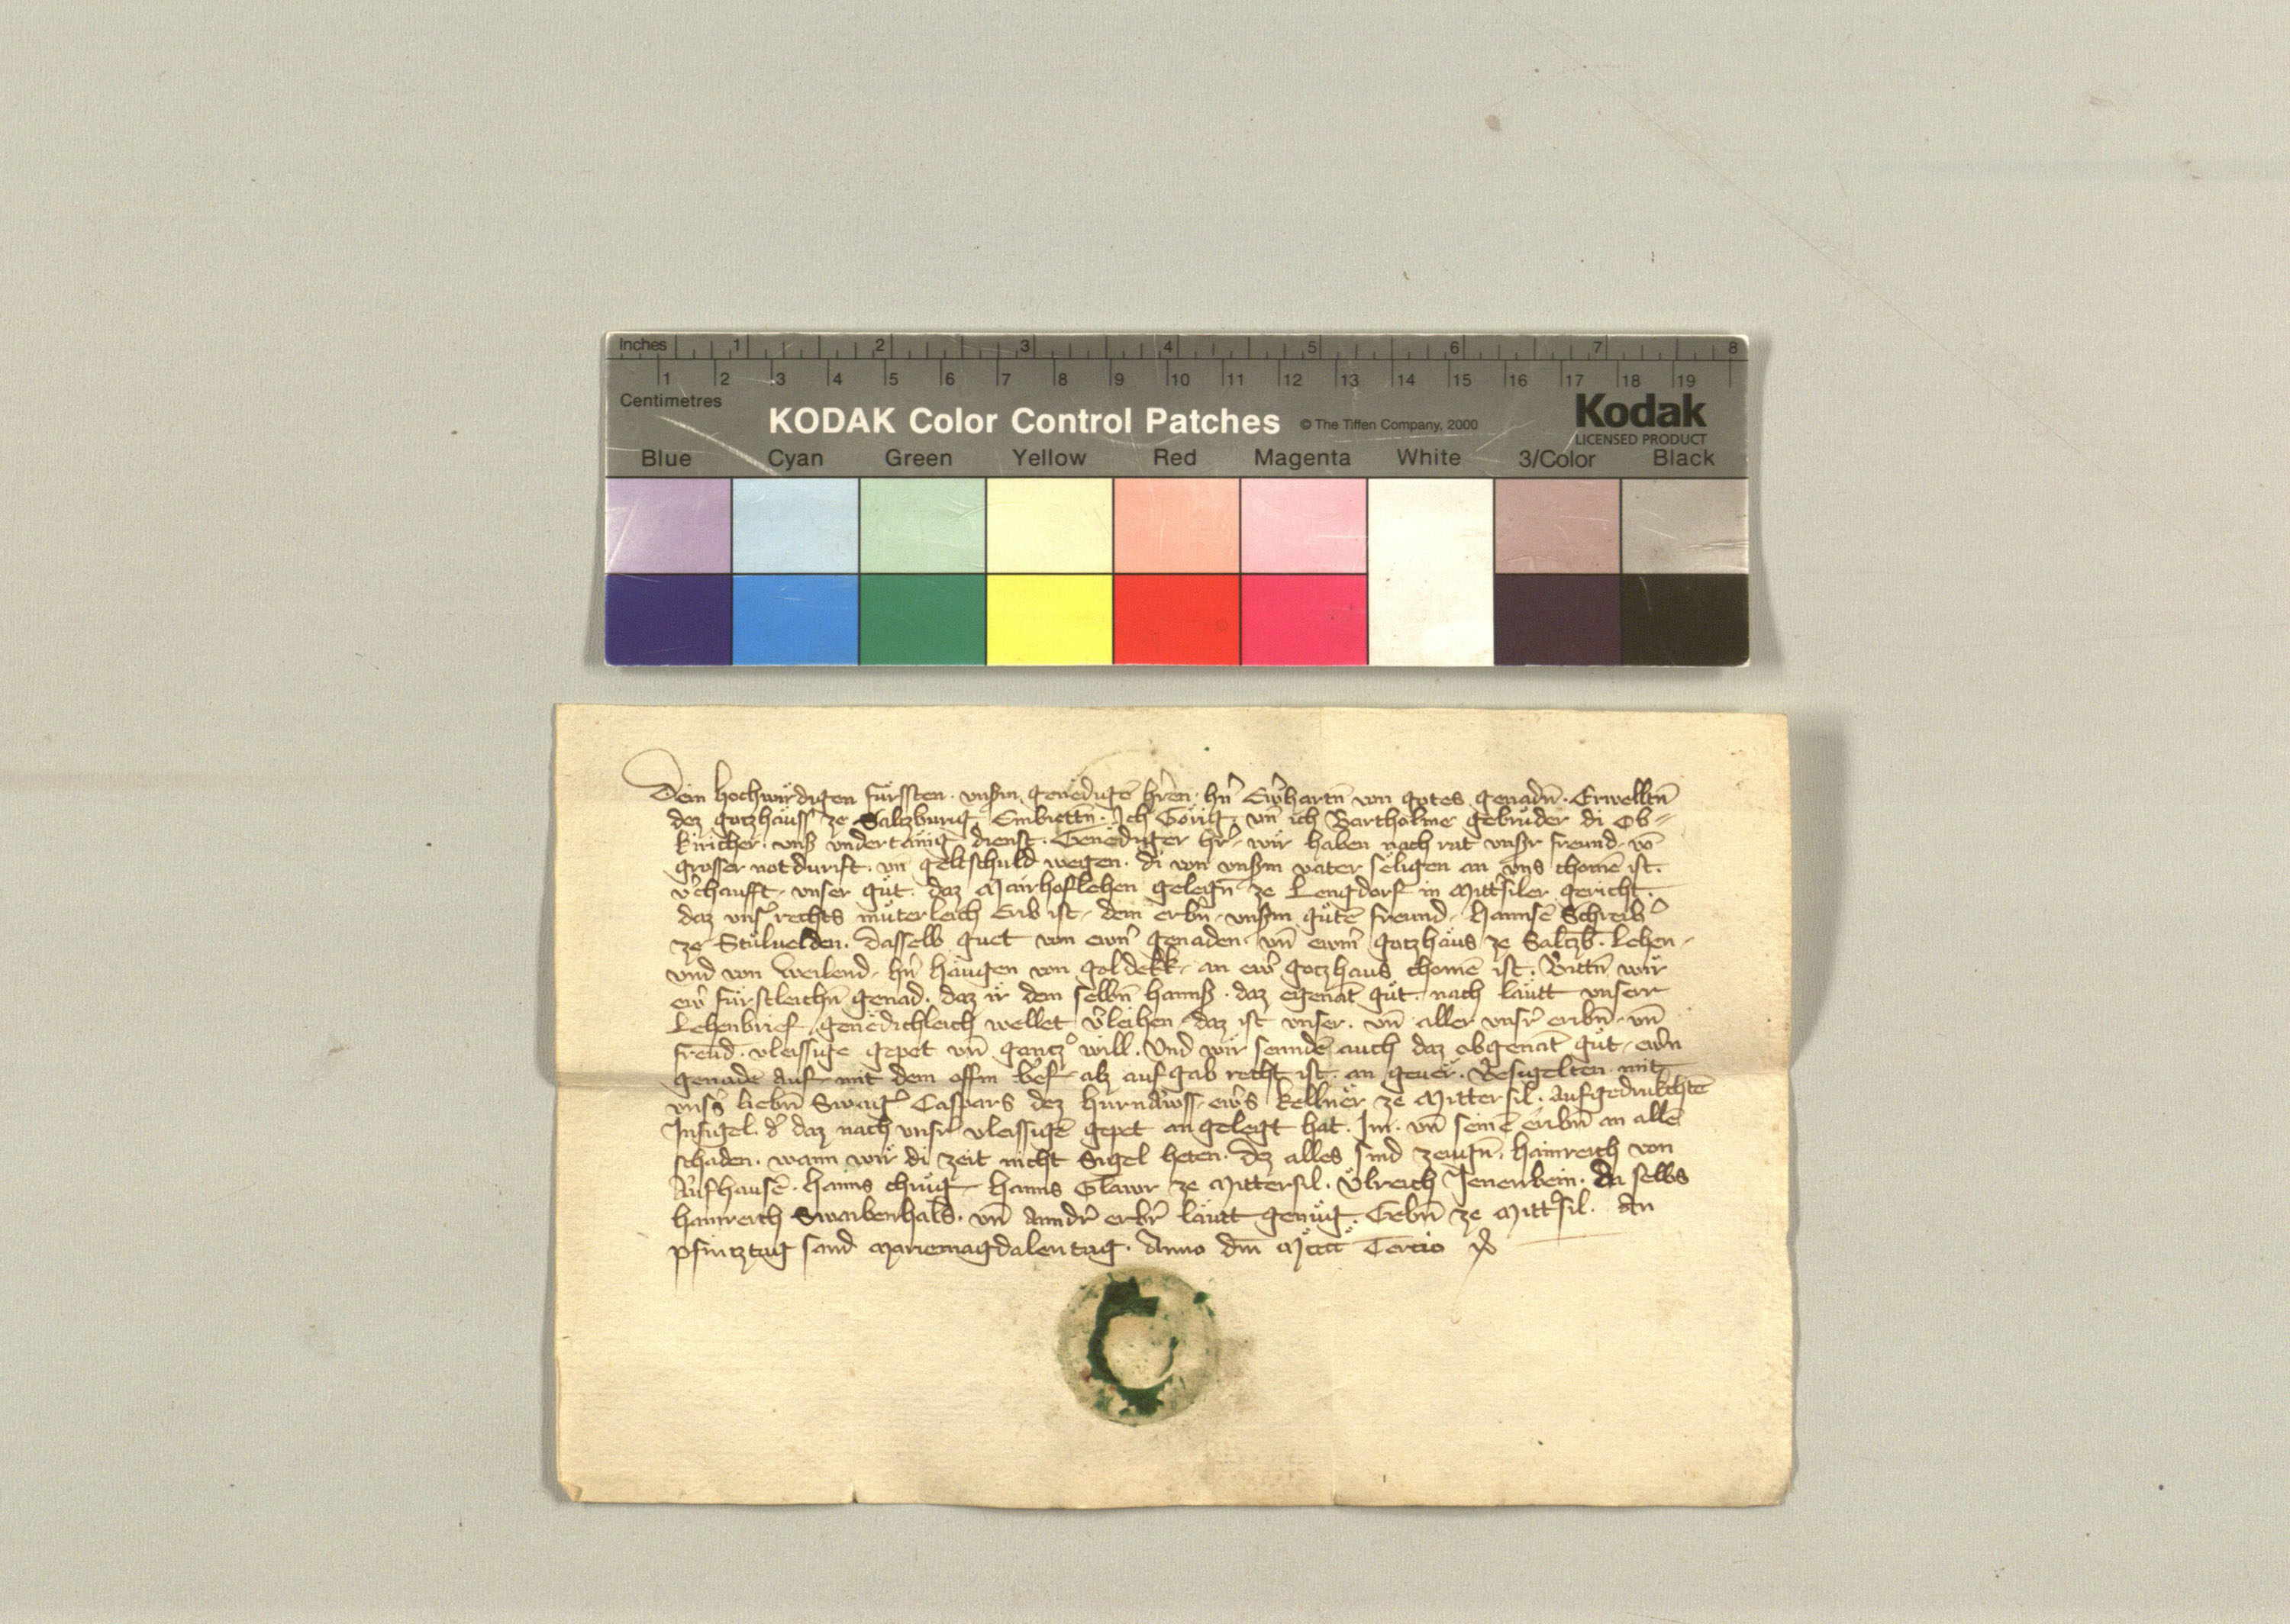 Inches 1 2 3 4 5 6 7 8
1 2 3 4 5 6 7 8 9 10 11 12 13 14 15 16 17 18 19
Centimetres
KODAK Color Control Patches © The Tiffen Company, 2000 Kodak
LICENSED PRODUCT
Blue Cyan Green Yellow Red Magenta White 3/Color Black
Dem hochwirdigen fürssten · unsm genedigē hren · hn Ewhartn von gotes genadn · Erwelltn
dez gotzhauss ze Saltzburig Embiettn · Ich Görig un ich Bartholme gebruder di Ob-
kiricher · uns undertanig dienst · Genediger hr · wir haben nach rat unsr freund · vō
grosser notdurift · un geltschuld wegen · di von unsm vater seligen an uns chomē ist ·
vchaufft · unser gut · daz Mairhoflehen gelegn ze Lengdorf in Mittsiler gericht ·
daz uns rechts muterleich Erib ist · dem erbn · unsm gutē freund · Hannsē Schreib
ze Stulvelden · Dasselb guet von ewn genaden · un ewm gotzhaus ze Saltzb · lehen ·
und von Weilend · hn Haugen von Goldekk · an ew gotzhaus chomē ist · Bittn wir
ew fürstleichn genad · daz ir dem selbn Hanns · daz egenāt gut · nach lautt unserr
Lehenbrief genedichleich wellet vleihen · daz ist unser · un aller unsr eribn · un
freud · vleissige gepet un gantz will · Und wir senndē auch daz obgenāt gut · ewn
genadē auf · mit dem offm bef · alz aufgab recht ist · an gever · Besigelten mit
unss liebn Swag Caspars dez Hurnawss · ews kellner ze Mittersil · aufgedrukchtē
Insigel · d daz nach unsr vleissigē gepet angelegt hat · Im · un seinē eribn an allē
schaden · wann wir di zeit nicht Sigel heten · Dez alles sind zeugn · Hainreich von
Aufhausē · Hanns chrug · Hanns Glawr ze Mittersil · Ulreich Jenerrbein · da selbs
Hainreich Swaibenhals · un anndr erbr lautt genug · Gebn ze Mittsil · An
pfintztag sand Mariemagdalen tag · Anno dm Mcccc Tercio